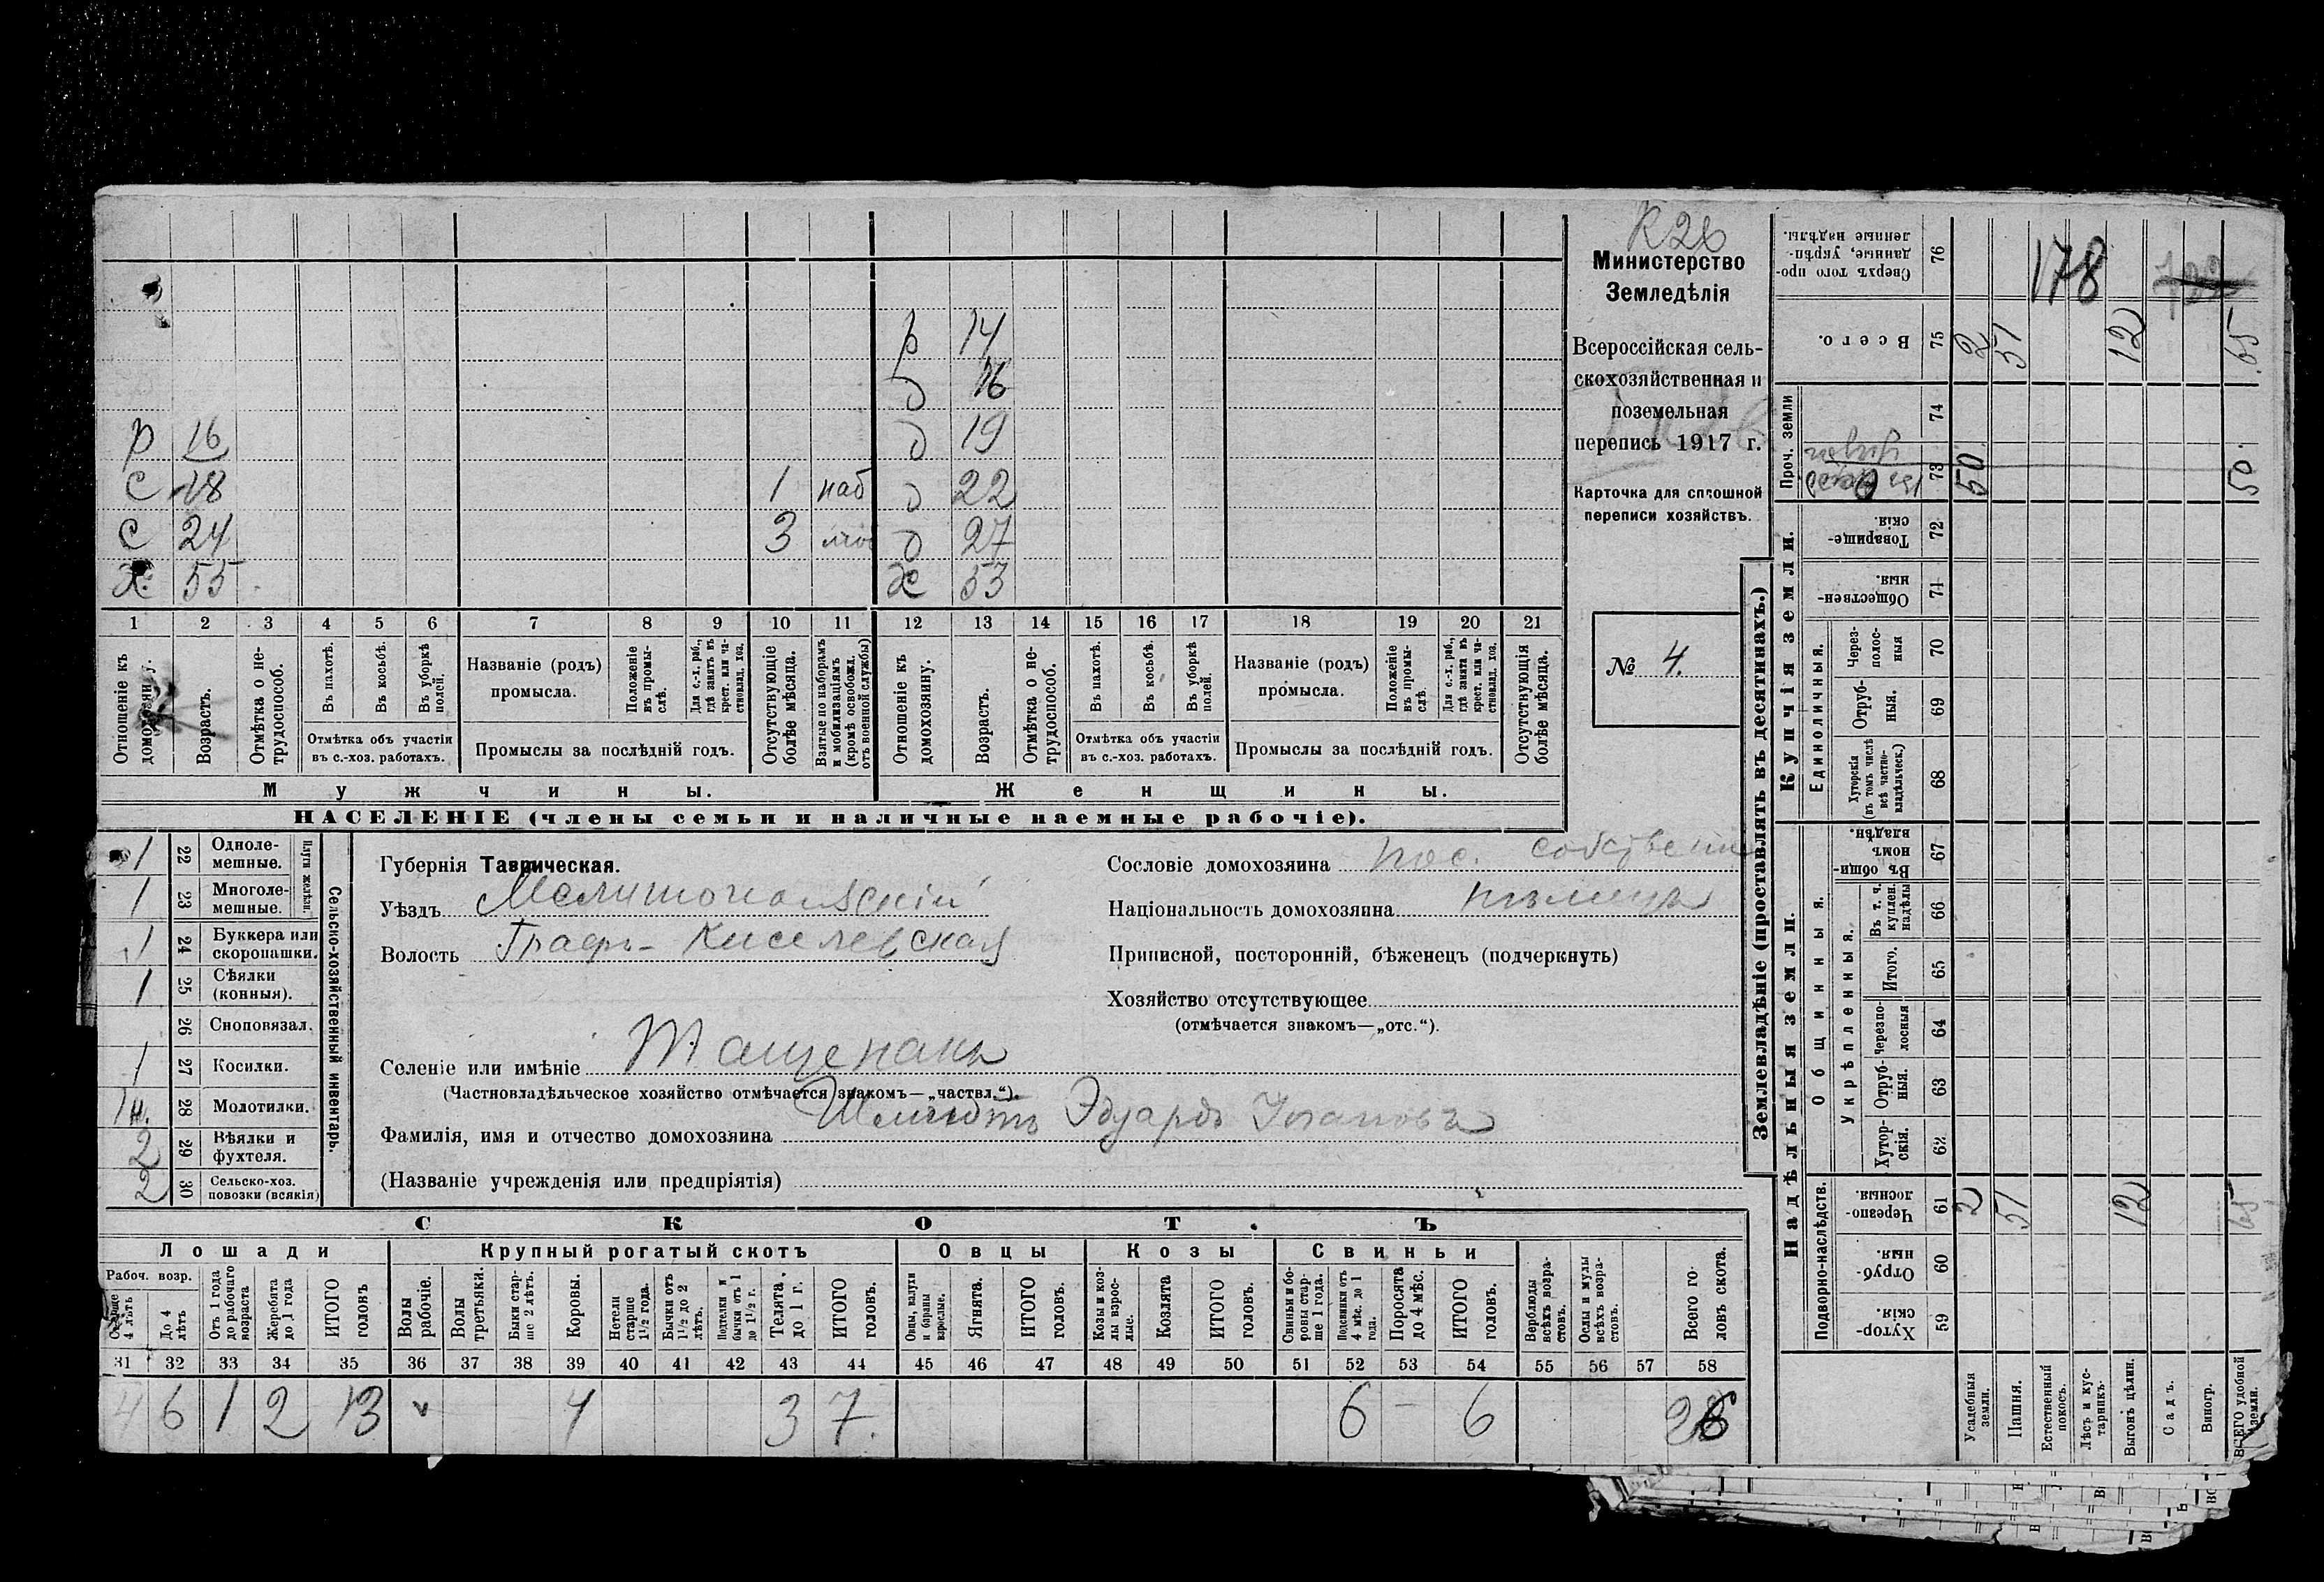 К 26
Министерство
Земледѣлія
Всероссійская сель-
скохозяйственная и
поземельная
перепись 1917 г.
Карточка для сплошной
переписи хозяйствъ.
№ 4.
р 14
д 16
р 16 д 19
с 18 1 наб д 22
с 24 3 д 27
х 55 х 53
1 2 3 4 5 6 7 8 9 10 11 12 13 14 15 16 17 18 19 20 21
Отношеніе къ домохозяину.
Возрастъ.
Отмѣтка о не-трудоспособ.
Въ пахотѣ.
Въ косьбѣ.
Въ уборкѣ полей.
Отмѣтка объ участіи
въ с.-хоз. работахъ.
Названіе (родъ)
промысла.
Положеніе въ промы-слѣ.
Для с.-х. раб., гдѣ занятъ въ крест. или ча-стновлад. хоз.
Промыслы за послѣдній годъ.
Отсутствующіе болѣе мѣсяца.
Взятые по наборамъ и мобилизаціямъ (кромѣ освобожд. отъ военной службы)
Отношеніе къ домохозяину.
Возрастъ.
Отмѣтка о не-трудоспособ.
Въ пахотѣ.
Въ косьбѣ.
Въ уборкѣ полей.
Отмѣтка объ участіи
въ с.-хоз. работахъ.
Названіе (родъ)
промысла.
Положеніе въ промы-слѣ.
Для с.-х. раб., гдѣ занята въ крест. или ча-стновлад. хоз.
Промыслы за послѣдній годъ.
Отсутствующія болѣе мѣсяца.
Мужчины. Женщины.
НАСЕЛЕНІЕ (члены семьи и наличные наемные рабочіе).
Сельско-хозяйственный инвентарь.
Плуги желѣзн.
1 22 Одноле-мешные.
1 23 Многоле-мешные.
1 24 Буккера или скоропашки.
1 25 Сѣялки (конныя).
26 Сноповязал.
1 27 Косилки.
28 Молотилки.
2 29 Вѣялки и фухтеля.
2 30 Сельско-хоз. повозки (всякія)
Губернія Таврическая.
Уѣздъ Мелитопольскій
Волость Графъ-Киселевская
Селеніе или имѣніе Тащенакъ
(Частновладѣльческое хозяйство отмѣчается знакомъ—„частвл.“).
Фамилія, имя и отчество домохозяина Шмидтъ Эдуардъ
(Названіе учрежденія или предпріятія)
Сословіе домохозяина пос. собственн
Національность домохозяина нѣмецъ
Приписной, посторонній, бѣженецъ (подчеркнуть)
Хозяйство отсутствующее
(отмѣчается знакомъ—„отс.“).
СКОТЪ.
Лошади Крупный рогатый скотъ Овцы Козы Свиньи
Рабоч. возр.
Старше 4 лѣтъ
До 4 лѣтъ
Отъ 1 года до рабочаго возраста
Жеребята до 1 года
ИТОГО головъ
Волы рабочіе.
Волы третьяки.
Быки стар-ше 2 лѣтъ.
Коровы.
Нетели старше 1½ года.
Бычки отъ 1½ до 2 лѣтъ.
Подтелки и бычки отъ 1 до 1½ г.
Телята до 1 г.
ИТОГО головъ.
Овцы, валухи и бараны взрослые.
Ягнята.
ИТОГО головъ.
Козы и коз-лы взрос-лые.
Козлята
ИТОГО головъ.
Свиньи и бо-ровы стар-ше 1 года.
Подсвинки отъ 4 мѣс. до 1 года.
Поросята до 4 мѣс.
ИТОГО головъ.
Верблюды всѣхъ возра-стовъ.
Ослы и мулы всѣхъ возра-стовъ.
Всего го-ловъ скота.
31 32 33 34 35 36 37 38 39 40 41 42 43 44 45 46 47 48 49 50 51 52 53 54 55 56 57 58
4 6 1 2 13 4 3 7. 6 – 6 26
Землевладѣніе (проставлять въ десятинахъ.)
Купчія земли.
Надѣльныя земли.
Проч. земли
Единоличныя.
Общинныя.
Укрѣпленныя.
Подворно-наслѣдств.
76 Сверхъ того про-данные, укрѣп-ленные надѣлы.
178
75 Всего. 2 51 12 65
74
73 50 50.
72 Товарище-скія.
71 Обществен-ныя.
70 Через-полос-ныя
69 Отруб-ныя.
68 Хуторскія (въ томъ числѣ всѣ частно-владѣльческ.)
67 Въ общи-номъ владѣн.
66 Въ т. ч. куплен. надѣлы
65 Итого.
64 Черезпо-лосныя
63 Отруб-ныя.
62 Хутор-скія.
61 Черезпо-лосныя. 2 51 12 65
60 Отруб-ныя.
59 Хутор-скія.
Усадебныя земли.
Пашня.
Естественный покосъ.
Лѣсъ и кус-тарникъ.
Выгонъ цѣлин.
Садъ.
Виногр.
ВСЕГО удобной земли.